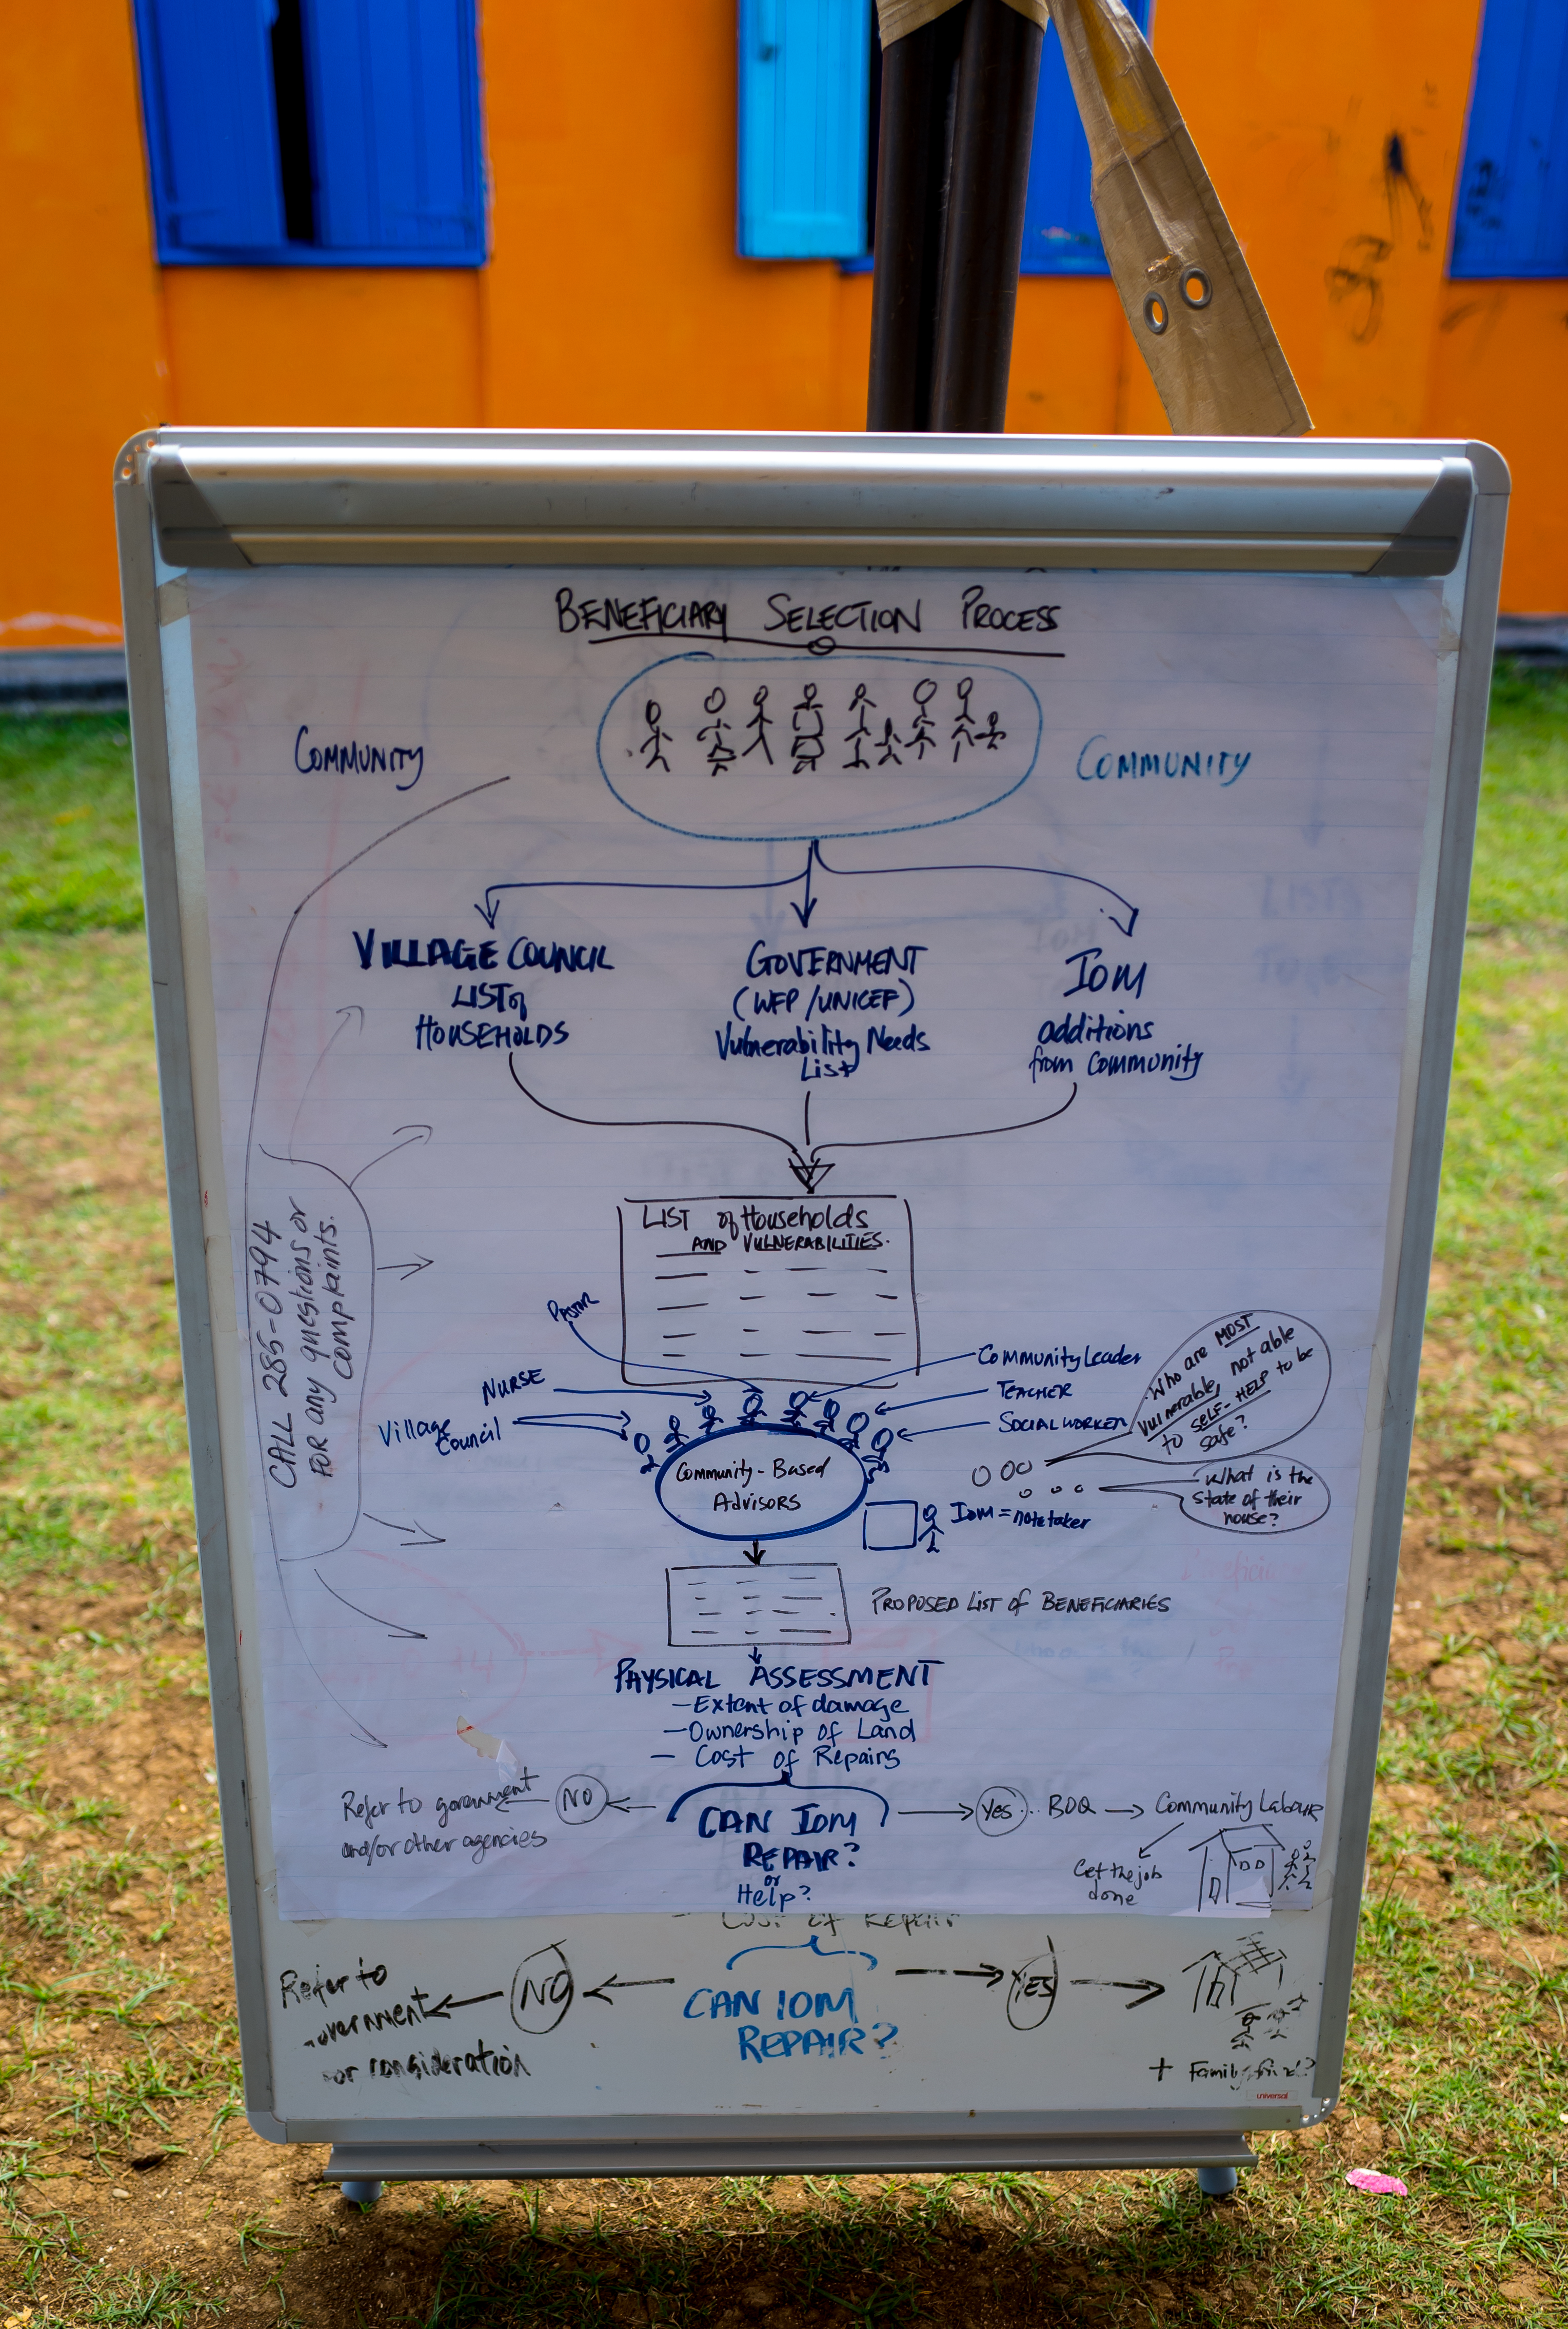 BENEFICIARY SELECTION PROCESS
COMMUNITY
COMMUNITY
VILLAGE COUNCIL
LIST of
HOUSEHOLDS
GOVERNMENT
(WFP/UNICEF)
Vulnerability Needs
List
IOM
additions
from Community
LIST of Households
AND VULNERABILITIES.
CALL 285-0794
FOR any questions or
complaints.
Pastor
NURSE
Village
Council
Community Leader
TEACHER
SOCIAL WORKER
Who are MOST
Vulnerable, not able
to SELF-HELP to be
safe?
What is the
State of their
house?
Community-Based
Advisors
IOM = notetaker
PROPOSED LIST of BENEFICIARIES
PHYSICAL ASSESSMENT
- Extent of damage
- Ownership of Land
- Cost of Repairs
Refer to government
and/or other agencies
NO
CAN IOM
REPAIR?
or
Help?
Yes
BOQ
Community Labour
Get the job
done
- Cost of Repair
Refer to
for consideration
NO
CAN IOM
REPAIR?
YES
+ Family
universal